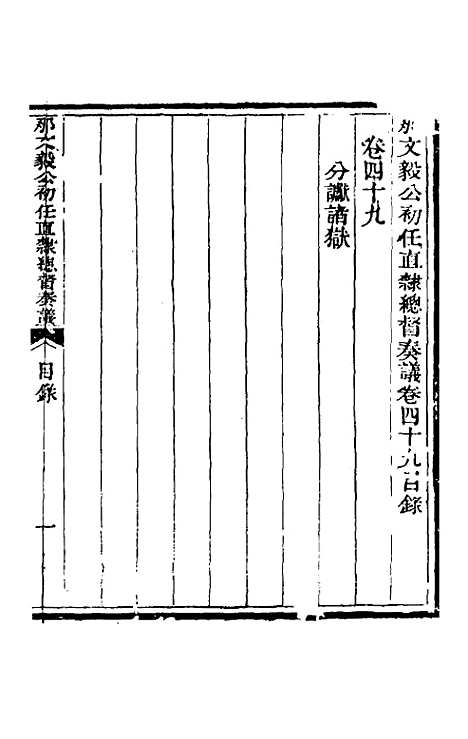 那文毅公初任直隸總督奏議卷四十九目錄
卷四十九
分讞諸獄
那文毅公初任直隸總督奏議
目錄
一